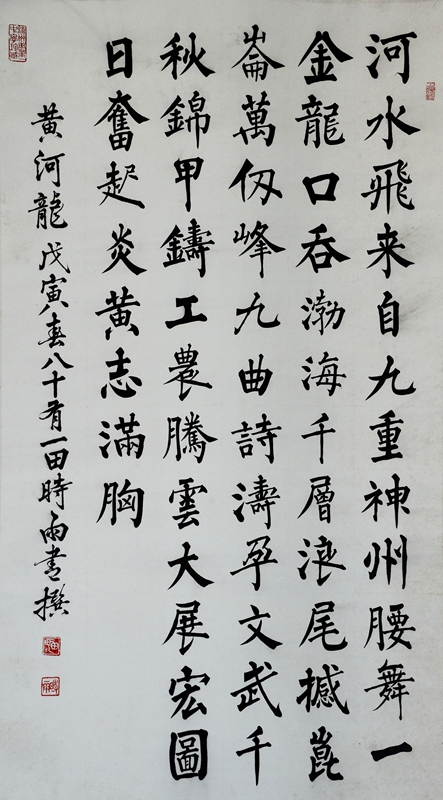 河水飛来自九重神州腰舞一
金龍口吞渤海千層浪尾撼崑
崙萬仭峰九曲詩濤孕文武千
秋錦甲鑄工農騰雲大展宏圖
日奮起炎黄志滿胸
黄河龍戊寅春八十有一田時雨書撰